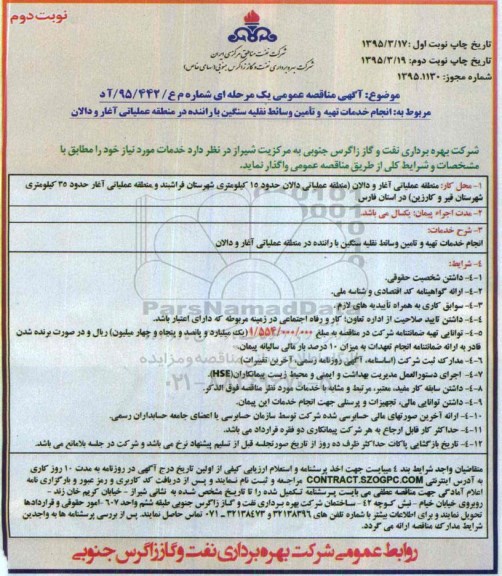 نوبت دوم
شرکت نفت مناطق مرکزی ایران
شرکت بهره برداری نفت و گاز زاگرس جنوبی (سهامی خاص)
تاریخ چاپ نوبت اول: ۱۳۹۵/۳/۱۷
تاریخ چاپ نوبت دوم: ۱۳۹۵/۳/۱۹
شماره مجوز: ۱۳۹۵.۱۱۳۰
موضوع: آگهی مناقصه عمومی یک مرحله ای شماره م ع/ ۹۵/۴۴۲/ آ د
مربوط به: انجام خدمات تهیه و تأمین وسائط نقلیه سنگین با راننده در منطقه عملیاتی آغار و دالان
شرکت بهره برداری نفت و گاز زاگرس جنوبی به مرکزیت شیراز در نظر دارد خدمات مورد نیاز خود را مطابق با
مشخصات و شرایط کلی از طریق مناقصه عمومی واگذار نماید.
۱- محل کار: منطقه عملیاتی آغار و دالان (منطقه عملیاتی دالان حدود ۱۵ کیلومتری شهرستان فراشبند و منطقه عملیاتی آغار حدود ۳۵ کیلومتری
شهرستان قیر و کارزین) در استان فارس
۲- مدت اجراء پیمان: یکسال می باشد.
۳- شرح خدمات:
انجام خدمات تهیه و تامین وسائط نقلیه سنگین با راننده در منطقه عملیاتی آغار و دالان
۴- شرایط:
۴-۱- داشتن شخصیت حقوقی.
۴-۲- ارائه گواهینامه کد اقتصادی و شناسه ملی.
۴-۳- سوابق کاری به همراه تأییدیه های لازم.
۴-۴- داشتن تایید صلاحیت از اداره تعاون، کار و رفاه اجتماعی در زمینه مربوطه که دارای اعتبار باشد.
۴-۵- توانایی تهیه ضمانتنامه شرکت در مناقصه به مبلغ ۱/۵۵۴/۰۰۰/۰۰۰ (یک میلیارد و پانصد و پنجاه و چهار میلیون) ریال و در صورت برنده شدن
قادر به ارائه ضمانتنامه انجام تعهدات به میزان ۱۰ درصد بار مالی سالیانه پیمان.
۴-۶- مدارک ثبت شرکت (اساسنامه، آگهی روزنامه رسمی، آخرین تغییرات).
۴-۷- اجرای دستورالعمل مدیریت بهداشت و ایمنی و محیط زیست پیمانکاران (HSE).
۴-۸- داشتن سابقه کار مفید، معتبر، مرتبط و مشابه با خدمات مورد نظر مناقصه فوق الذکر.
۴-۹- داشتن توانایی مالی، تجهیزات و پرسنلی جهت انجام خدمات این پیمان.
۴-۱۰- ارائه آخرین صورتهای مالی حسابرسی شده شرکت توسط سازمان حسابرسی یا اعضای جامعه حسابداران رسمی.
۴-۱۱- حداکثر کار قابل ارجاع به هر شرکت پیمانکاری دو فقره قرارداد می باشد.
۴-۱۲- تاریخ بازگشایی پاکات حداکثر ظرف ده روز از تاریخ صورتجلسه قبل از تسلیم پیشنهاد نرخ می باشد و شرکت در جلسه بلامانع می باشد.
متقاضیان واجد شرایط بند ۴ میبایست جهت اخذ پرسشنامه و استعلام ارزیابی کیفی از اولین تاریخ درج آگهی در روزنامه به مدت ۱۰ روز کاری
به آدرس اینترنتی CONTRACT.SZOGPC.COM مراجعه و ثبت نام نمایند و پس از دریافت کد کاربری و رمز عبور و بارگزاری نامه
اعلام آمادگی جهت مناقصه عطفی می بایست پرسشنامه تکمیل شده را تا تاریخ مشخص شده به نشانی شیراز - خیابان کریم خان زند -
روبروی خیابان خیام - نبش کوچه ۴۲ - ساختمان شرکت بهره برداری نفت و گاز زاگرس جنوبی طبقه ششم واحد ۶۰۷- امور حقوقی و قراردادها
تحویل نمایند و برای اطلاعات بیشتر با شماره تلفن های ۳۲۱۳۸۳۹۶ و ۳۲۱۳۸۴۷۳ - ۰۷۱ تماس حاصل نمایند. پس از بررسی پرسشنامه ها به واجدین
شرایط مدارک مناقصه ارائه می گردد.
روابط عمومی شرکت بهره برداری نفت و گاز زاگرس جنوبی